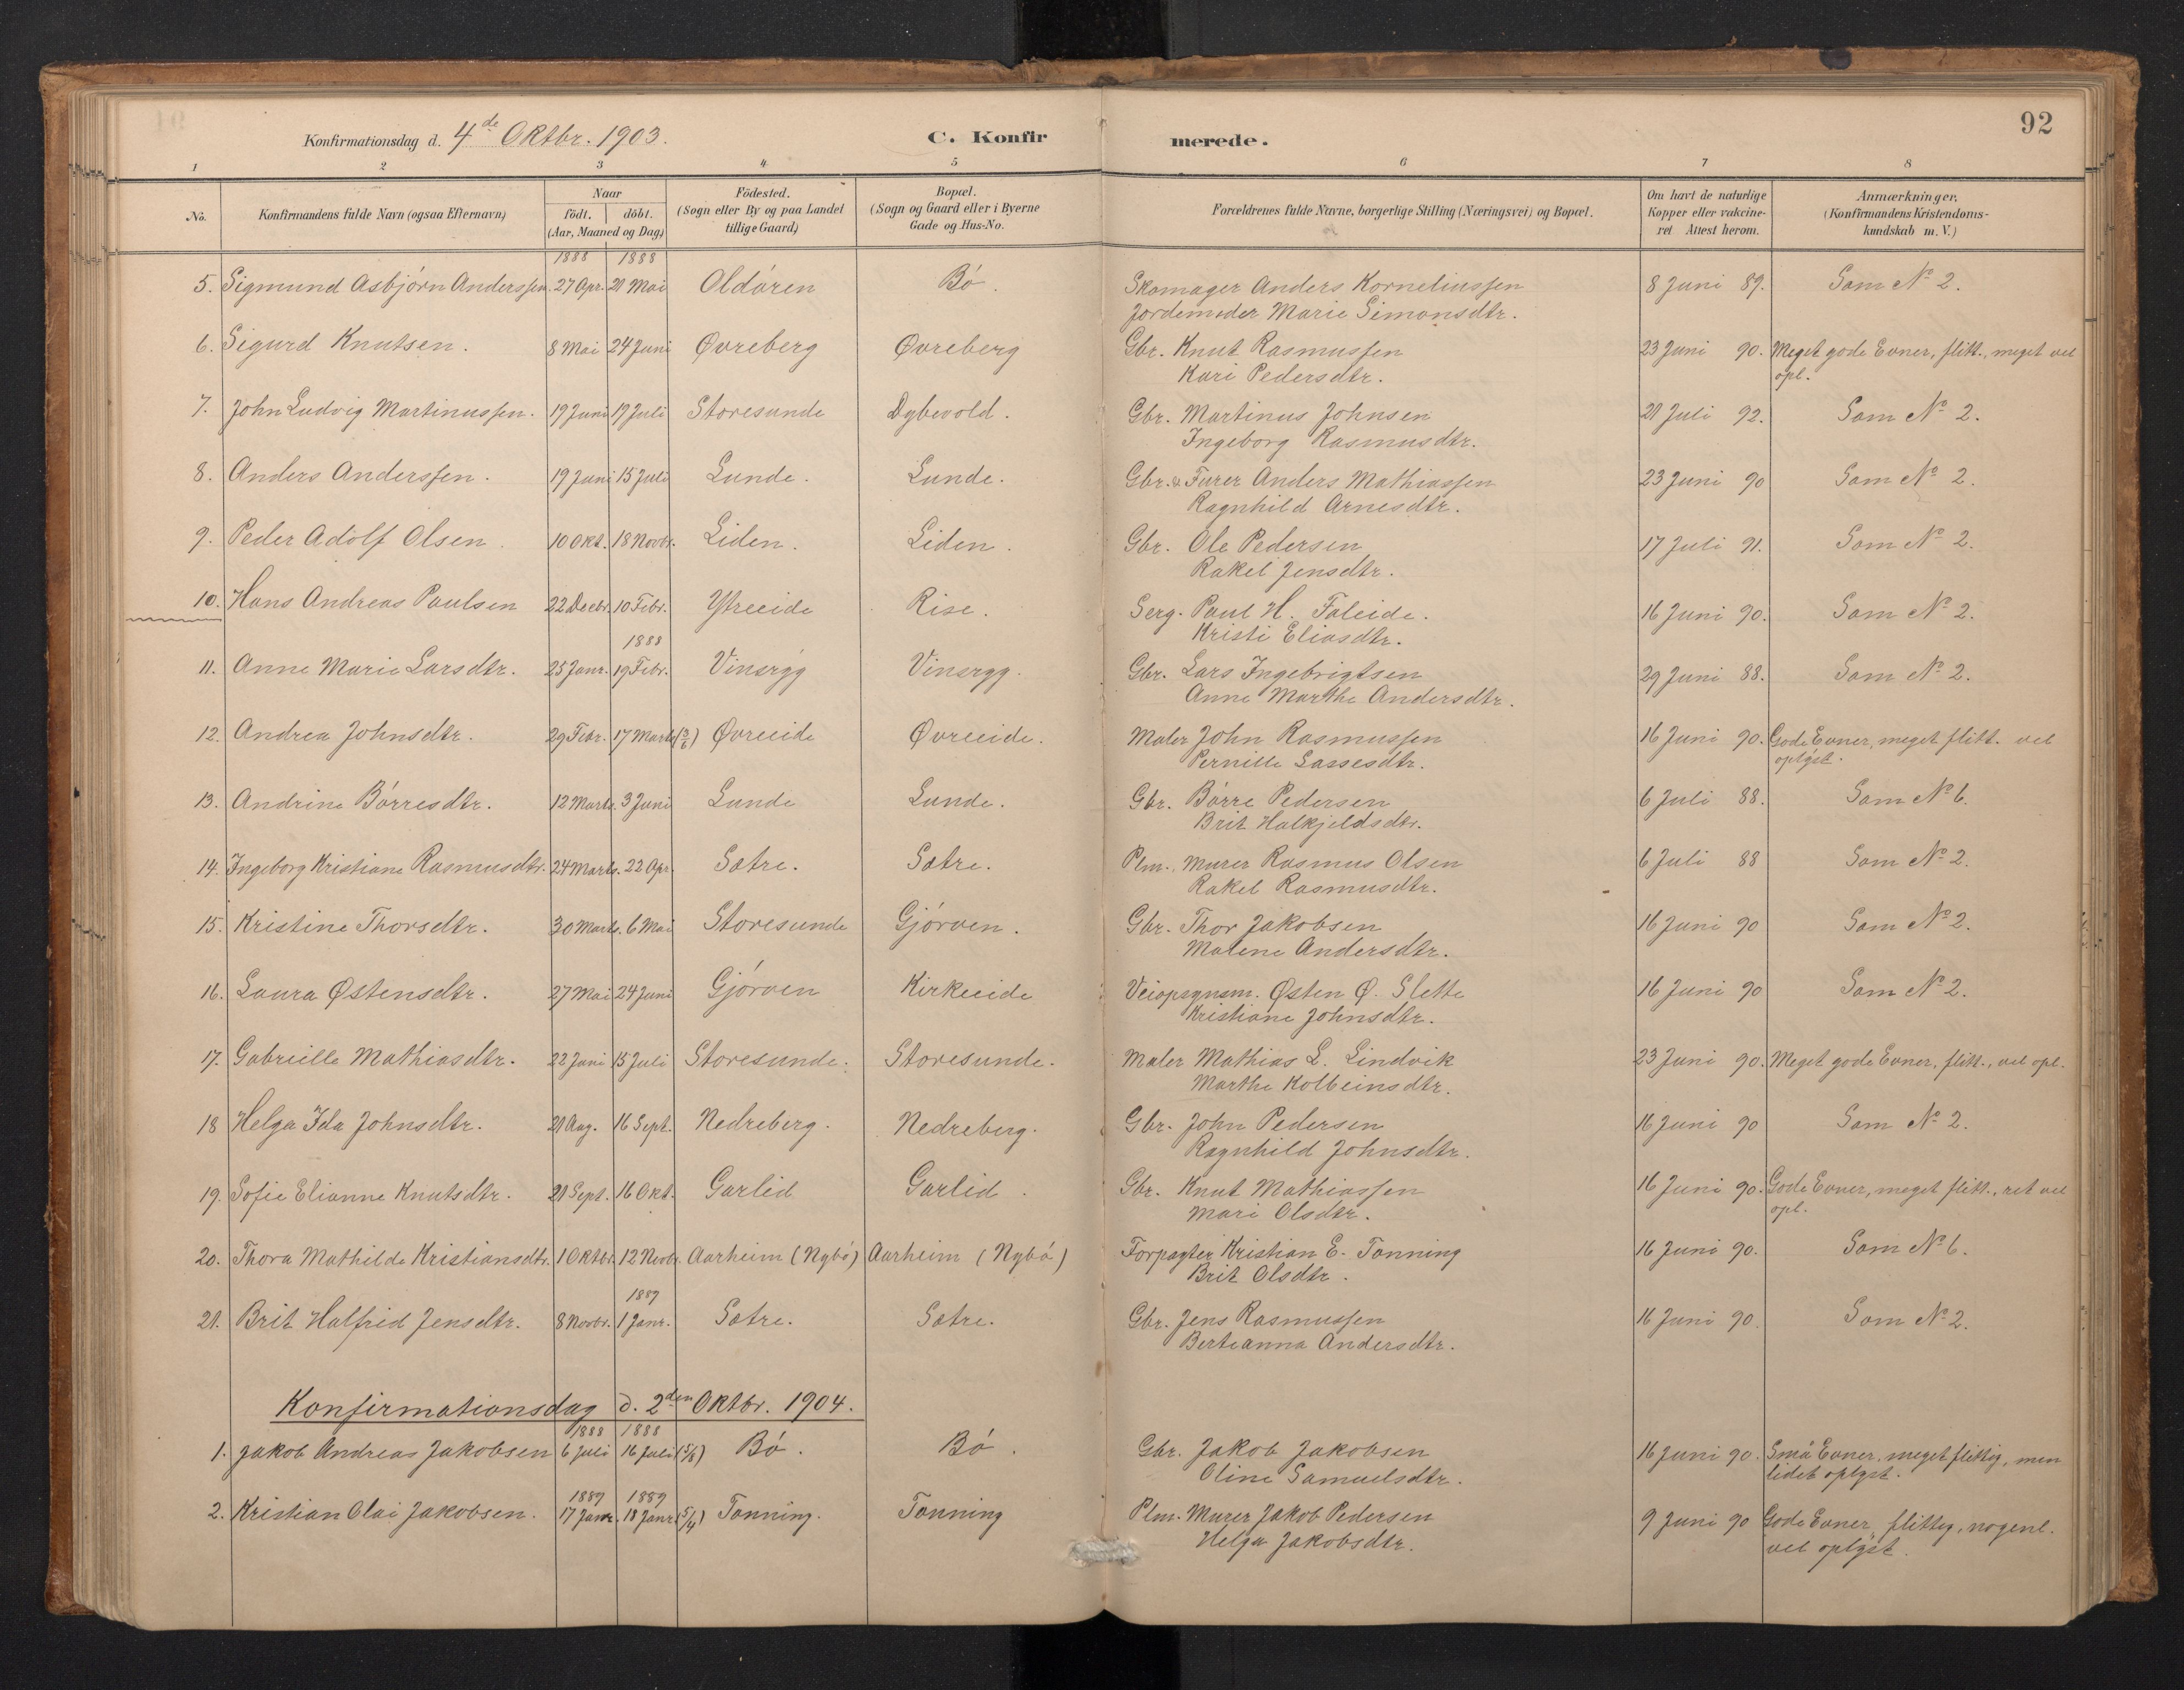 92
Konfirmationsdag d. 4de Oktbr. 1903. C. Konfirmerede.
1 2 3 4 5 6 7 8
No. Konfirmandens fulde Navn (ogsaa Efternavn) Naar födt. döbt. (Aar, Maaned og Dag) Födested. (Sogn eller By og paa Landet tillige Gaard) Bopæl. (Sogn og Gaard eller i Byerne Gade og Hus-No. Forældrenes fulde Navne, borgerlige Stilling (Næringsvei) og Bopæl. Om havt de naturlige Kopper eller vakcineret Attest herom. Anmærkninger. (Konfirmandens Kristendomskundskab m. V.)
1888 1888
5. Sigmund Asbjørn Anderssen. 27 Apr. 21 Mai Oldøren Bø. Skomager Anders Korneliussen 8 Juni 89. Som No 2.
Jordemoder Marie Simonsdtr.
6. Sigurd Knutsen. 8 Mai 24 Juni Øvreberg Øvreberg Gbr. Knut Rasmussen 23 Juni 90. Meget gode Evner, flitt., meget vel
Kari Pedersdtr. opl.
7. John Ludvig Martinussen. 19 Juni 17 Juli Storesunde Dybevold. Gbr. Martinus Johnsen 21 Juli 92. Som No 2.
Ingeborg Rasmusdtr.
8. Anders Anderssen. 19 Juni 15 Juli Lunde. Lunde. Gbr. & Furer Anders Mathiassen 23 Juni 90 Som No 2.
Ragnhild Arnesdtr.
9. Peder Adolf Olsen. 10 Okt. 18 Novbr. Liden. Liden. Gbr. Ole Pedersen 17 Juli 91. Som No 2.
Rakel Jensdtr.
10. Hans Andreas Paulsen 22 Decbr. 10 Febr. Ytreeide Rise. Serg. Paul H. Faleide. 16 Juni 90. Som No 2.
Kristi Eliasdtr.
1888
11. Anne Marie Larsdtr. 25 Janr. 19 Febr. Vinsrygg Vinsrygg. Gbr. Lars Ingebrigtsen 29 Juni 88. Som No 2.
Anne Marthe Andersdtr.
12. Andrea Johnsdtr. 29 Febr. 17 Marts (3/6) Øvreeide Øvreeide. Maler John Rasmussen 16 Juni 90. Gode Evner, meget flitt. vel
Pernille Lassesdtr. oplyst.
13. Andrine Børresdtr. 12 Marts. 3 Juni Lunde Lunde. Gbr. Børre Pedersen 6 Juli 88. Som No 6.
Brit Halkjeldsdtr.
14. Ingeborg Kristiane Rasmusdtr. 24 Marts. 22 Apr. Sætre. Sætre. Plm., Murer Rasmus Olsen 6 Juli 88 Som No 2.
Rakel Rasmusdtr.
15. Kristine Thorsdtr. 30 Marts. 6 Mai Storesunde Gjørven. Gbr. Thor Jakobsen 16 Juni 90 Som No 2.
Malene Andersdtr.
16. Laura Østensdtr. 27 Mai 24 Juni Gjørven Kirkeeide Veiopsynsm. Østen Ø. Slette 16 Juni 90 Som No 2.
Kristiane Johnsdtr.
17. Gabrielle Mathiasdtr. 22 Juni 15 Juli Storesunde. Storesunde. Maler Mathias L. Lindvik 23 Juni 90. Meget gode Evner, flitt., vel opl.
Marthe Kolbeinsdtr.
18 Helga Ida Johnsdtr. 21 Aug. 16 Sept. Nedreberg. Nedreberg. Gbr. John Pedersen 16 Juni 90 Som No 2.
Ragnhild Johnsdtr.
19. Sofie Elianne Knutsdtr. 21 Sept. 16 Okt. Garlid Garlid. Gbr. Knut Mathiassen 16 Juni 90. Gode Evner, meget flitt., ret vel
Mari Olsdtr. opl.
20. Thora Mathilde Kristiansdtr. 1 Oktbr. 12 Novbr. Aarheim (Nybø) Aarheim (Nybø) Forpagter Kristian E. Tonning 16 Juni 90. Som No 6.
Brit Olsdtr.
1889
21. Brit Halfrid Jensdtr. 8 Novbr. 1 Janr. Sætre. Sætre. Gbr. Jens Rasmussen 16 Juni 90. Som No 2.
Berteanna Andersdtr.
Konfirmationsdag d. 2den Oktbr. 1904.
1888 1888
1. Jakob Andreas Jakobsen 6 Juli 16 Juli (5/8) Bø. Bø. Gbr. Jakob Jakobsen 16 Juni 90. Små Evner, meget flittig, men
Oline Samuelsdtr. lidet oplyst.
1889 1889
2. Kristian Olai Jakobsen. 17 Janr. 18 Janr. (5/4) Tonning. Tonning Plm. Murer Jakob Pedersen 9 Juni 90 Gode Evner, flittig, nogenl.
Helga Jakobsdtr. vel oplyst.